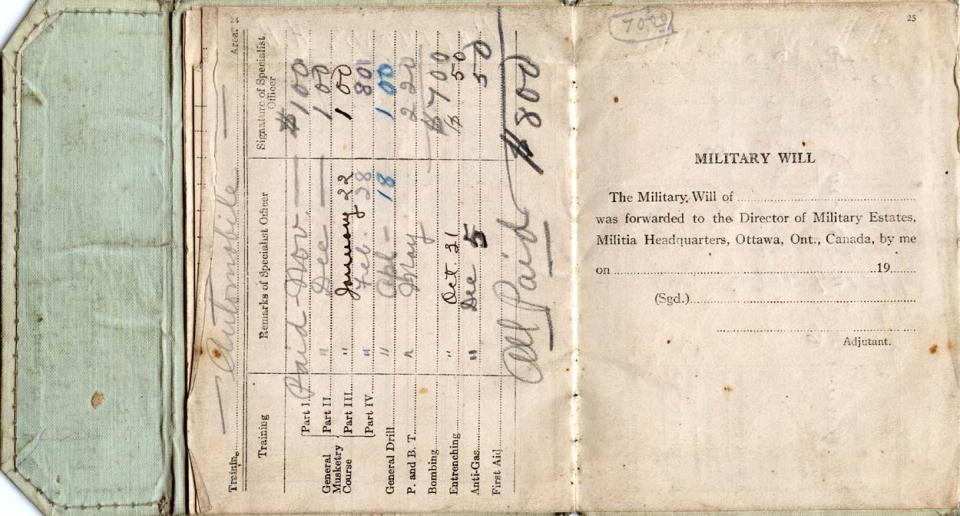 24
Training Area
— Automobile —
Training Remarks of Specialist Officer Signature of Specialist Officer
General Musketry Course
Part I. Paid Nov — $1 00
Part II. " Dec — 1 00
Part III. " January 22 1 00
Part IV. " Feb. 28 80
General Drill " Apl - 18 1 00
P. and B. T. " May 2 20
Bombing $7 00
Entrenching " Oct. 31 $ 50
Anti-Gas " Dec 5 50
First Aid
All Paid — $8 00
25
MILITARY WILL
The Military Will of
was forwarded to the Director of Military Estates,
Militia Headquarters, Ottawa, Ont., Canada, by me
on 19
(Sgd.)
Adjutant.